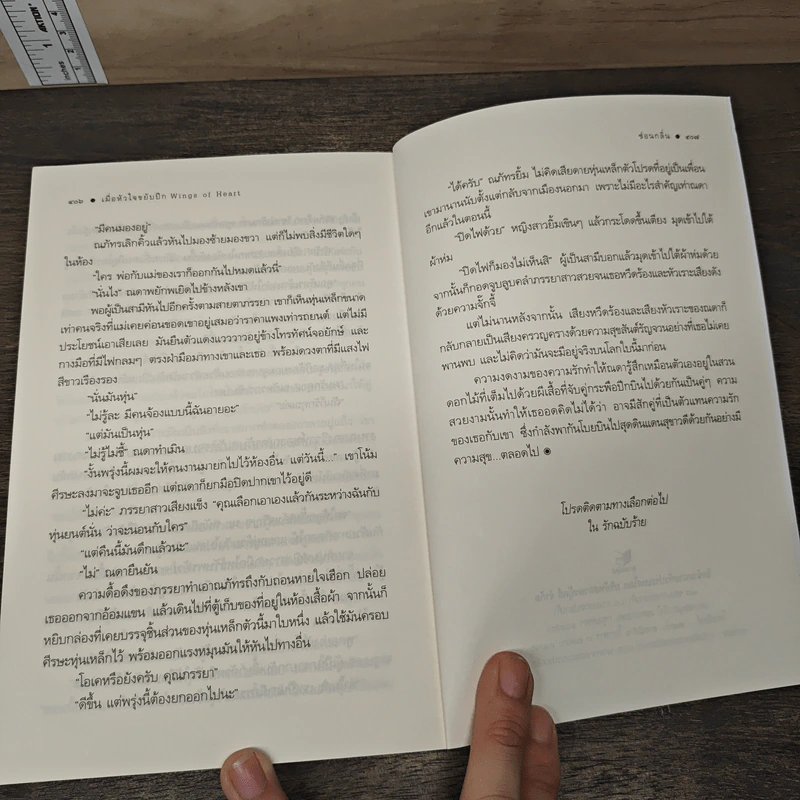 ๔๐๖ ● เมื่อหัวใจขยับปีก Wings of Heart
"มีคนมองอยู่"
ณภัทรเลิกคิ้วแล้วหันไปมองซ้ายมองขวา แต่ก็ไม่พบสิ่งมีชีวิตใดๆ
ในห้อง
"ใคร พ่อกับแม่ของเราก็ออกกันไปหมดแล้วนี่"
"นั่นไง" ณดาพยักพเยิดไปข้างหลังเขา
พอผู้เป็นสามีหันไปอีกครั้งตามสายตาภรรยา เขาก็เห็นหุ่นเหล็กขนาด
เท่าคนจริงที่แม่เคยค่อนขอดเขาอยู่เสมอว่าราคาแพงเท่ารถยนต์ แต่ไม่มี
ประโยชน์เอาเสียเลย มันยืนตัวแดงแวววาวอยู่ข้างโทรทัศน์จอยักษ์ และ
กางมือที่มีไฟกลมๆ ตรงฝ่ามือมาทางเขาและเธอ พร้อมดวงตาที่มีแสงไฟ
สีขาวเรืองรอง
"นั่นมันหุ่น"
"ไม่รู้ละ มีคนจ้องแบบนี้ฉันอายอะ"
"แต่มันเป็นหุ่น"
"ไม่รู้ไม่ชี้" ณดาทำเมิน
"งั้นพรุ่งนี้ผมจะให้คนงานมายกไปไว้ห้องอื่น แต่วันนี้..." เขาโน้ม
ศีรษะลงมาจะจูบเธออีก แต่ณดาก็ยกมือปิดปากเขาไว้อยู่ดี
"ไม่ค่ะ" ภรรยาสาวเสียงแข็ง "คุณเลือกเอาเองแล้วกันระหว่างฉันกับ
หุ่นยนต์นั่น ว่าจะนอนกับใคร"
"แต่คืนนี้มันดึกแล้วนะ"
"ไม่" ณดายืนยัน
ความดื้อดึงของภรรยาทำเอาณภัทรถึงกับถอนหายใจเฮือก ปล่อย
เธอออกจากอ้อมแขน แล้วเดินไปที่ตู้เก็บของที่อยู่ในห้องเสื้อผ้า จากนั้นก็
หยิบกล่องที่เคยบรรจุชิ้นส่วนของหุ่นเหล็กตัวนี้มาใบหนึ่ง แล้วใช้มันครอบ
ศีรษะหุ่นเหล็กไว้ พร้อมออกแรงหมุนมันให้หันไปทางอื่น
"โอเคหรือยังครับ คุณภรรยา"
"ดีขึ้น แต่พรุ่งนี้ต้องยกออกไปนะ"
ซ่อนกลิ่น ● ๔๐๗
"ได้ครับ" ณภัทรยิ้ม ไม่คิดเสียดายหุ่นเหล็กตัวโปรดที่อยู่เป็นเพื่อน
เขามานานนับตั้งแต่กลับจากเมืองนอกมา เพราะไม่มีอะไรสำคัญเท่าณดา
อีกแล้วในตอนนี้
"ปิดไฟด้วย" หญิงสาวยิ้มเขินๆ แล้วกระโดดขึ้นเตียง มุดเข้าไปใต้
ผ้าห่ม
"ปิดไฟก็มองไม่เห็นสิ" ผู้เป็นสามีบอกแล้วมุดเข้าไปใต้ผ้าห่มด้วย
จากนั้นก็กอดจูบลูบคลำภรรยาสาวสวยจนเธอหวีดร้องและหัวเราะเสียงดัง
ด้วยความจั๊กจี้
แต่ไม่นานหลังจากนั้น เสียงหวีดร้องและเสียงหัวเราะของณดาก็
กลับกลายเป็นเสียงครวญครางด้วยความสุขสันต์รัญจวนอย่างที่เธอไม่เคย
พานพบ และไม่คิดว่ามันจะมีอยู่จริงบนโลกใบนี้มาก่อน
ความงดงามของความรักทำให้ณดารู้สึกเหมือนตัวเองอยู่ในสวน
ดอกไม้ที่เต็มไปด้วยผีเสื้อที่จับคู่กระพือปีกบินไปด้วยกันเป็นคู่ๆ ความ
สวยงามนั้นทำให้เธออดคิดไม่ได้ว่า อาจมีสักคู่ที่เป็นตัวแทนความรัก
ของเธอกับเขา ซึ่งกำลังพากันโบยบินไปสุดดินแดนสุขาวดีด้วยกันอย่างมี
ความสุข...ตลอดไป ๏
โปรดติดตามทางเลือกต่อไป
ใน รักฉบับร้าย
inches 1 2